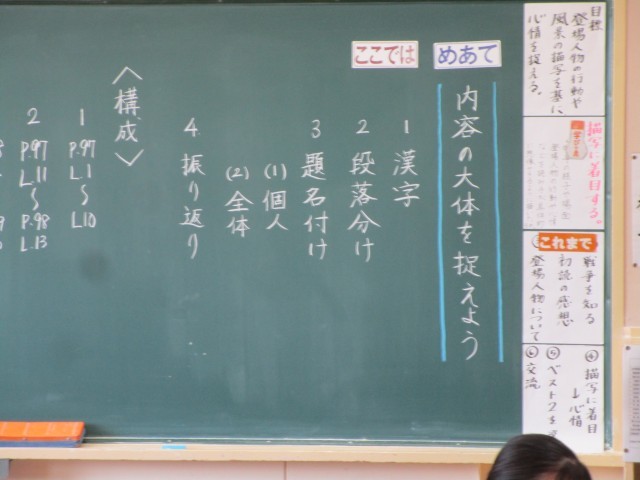 目標
登場人物の行動や
風景の描写を基に
心情を捉える。
描写に着目する。
これまで
戦争を知る
初読の感想
登場人物について
④描写に着目
↓心情
⑤ベスト2を
⑥交流
めあて
ここでは
内容の大体を捉えよう
1 漢字
2 段落分け
3 題名付け
(1) 個人
(2) 全体
4 振り返り
〈構成〉
1 P.97 L.1 〜 L.10
2 P.97 L.11 〜 P.98 L.13